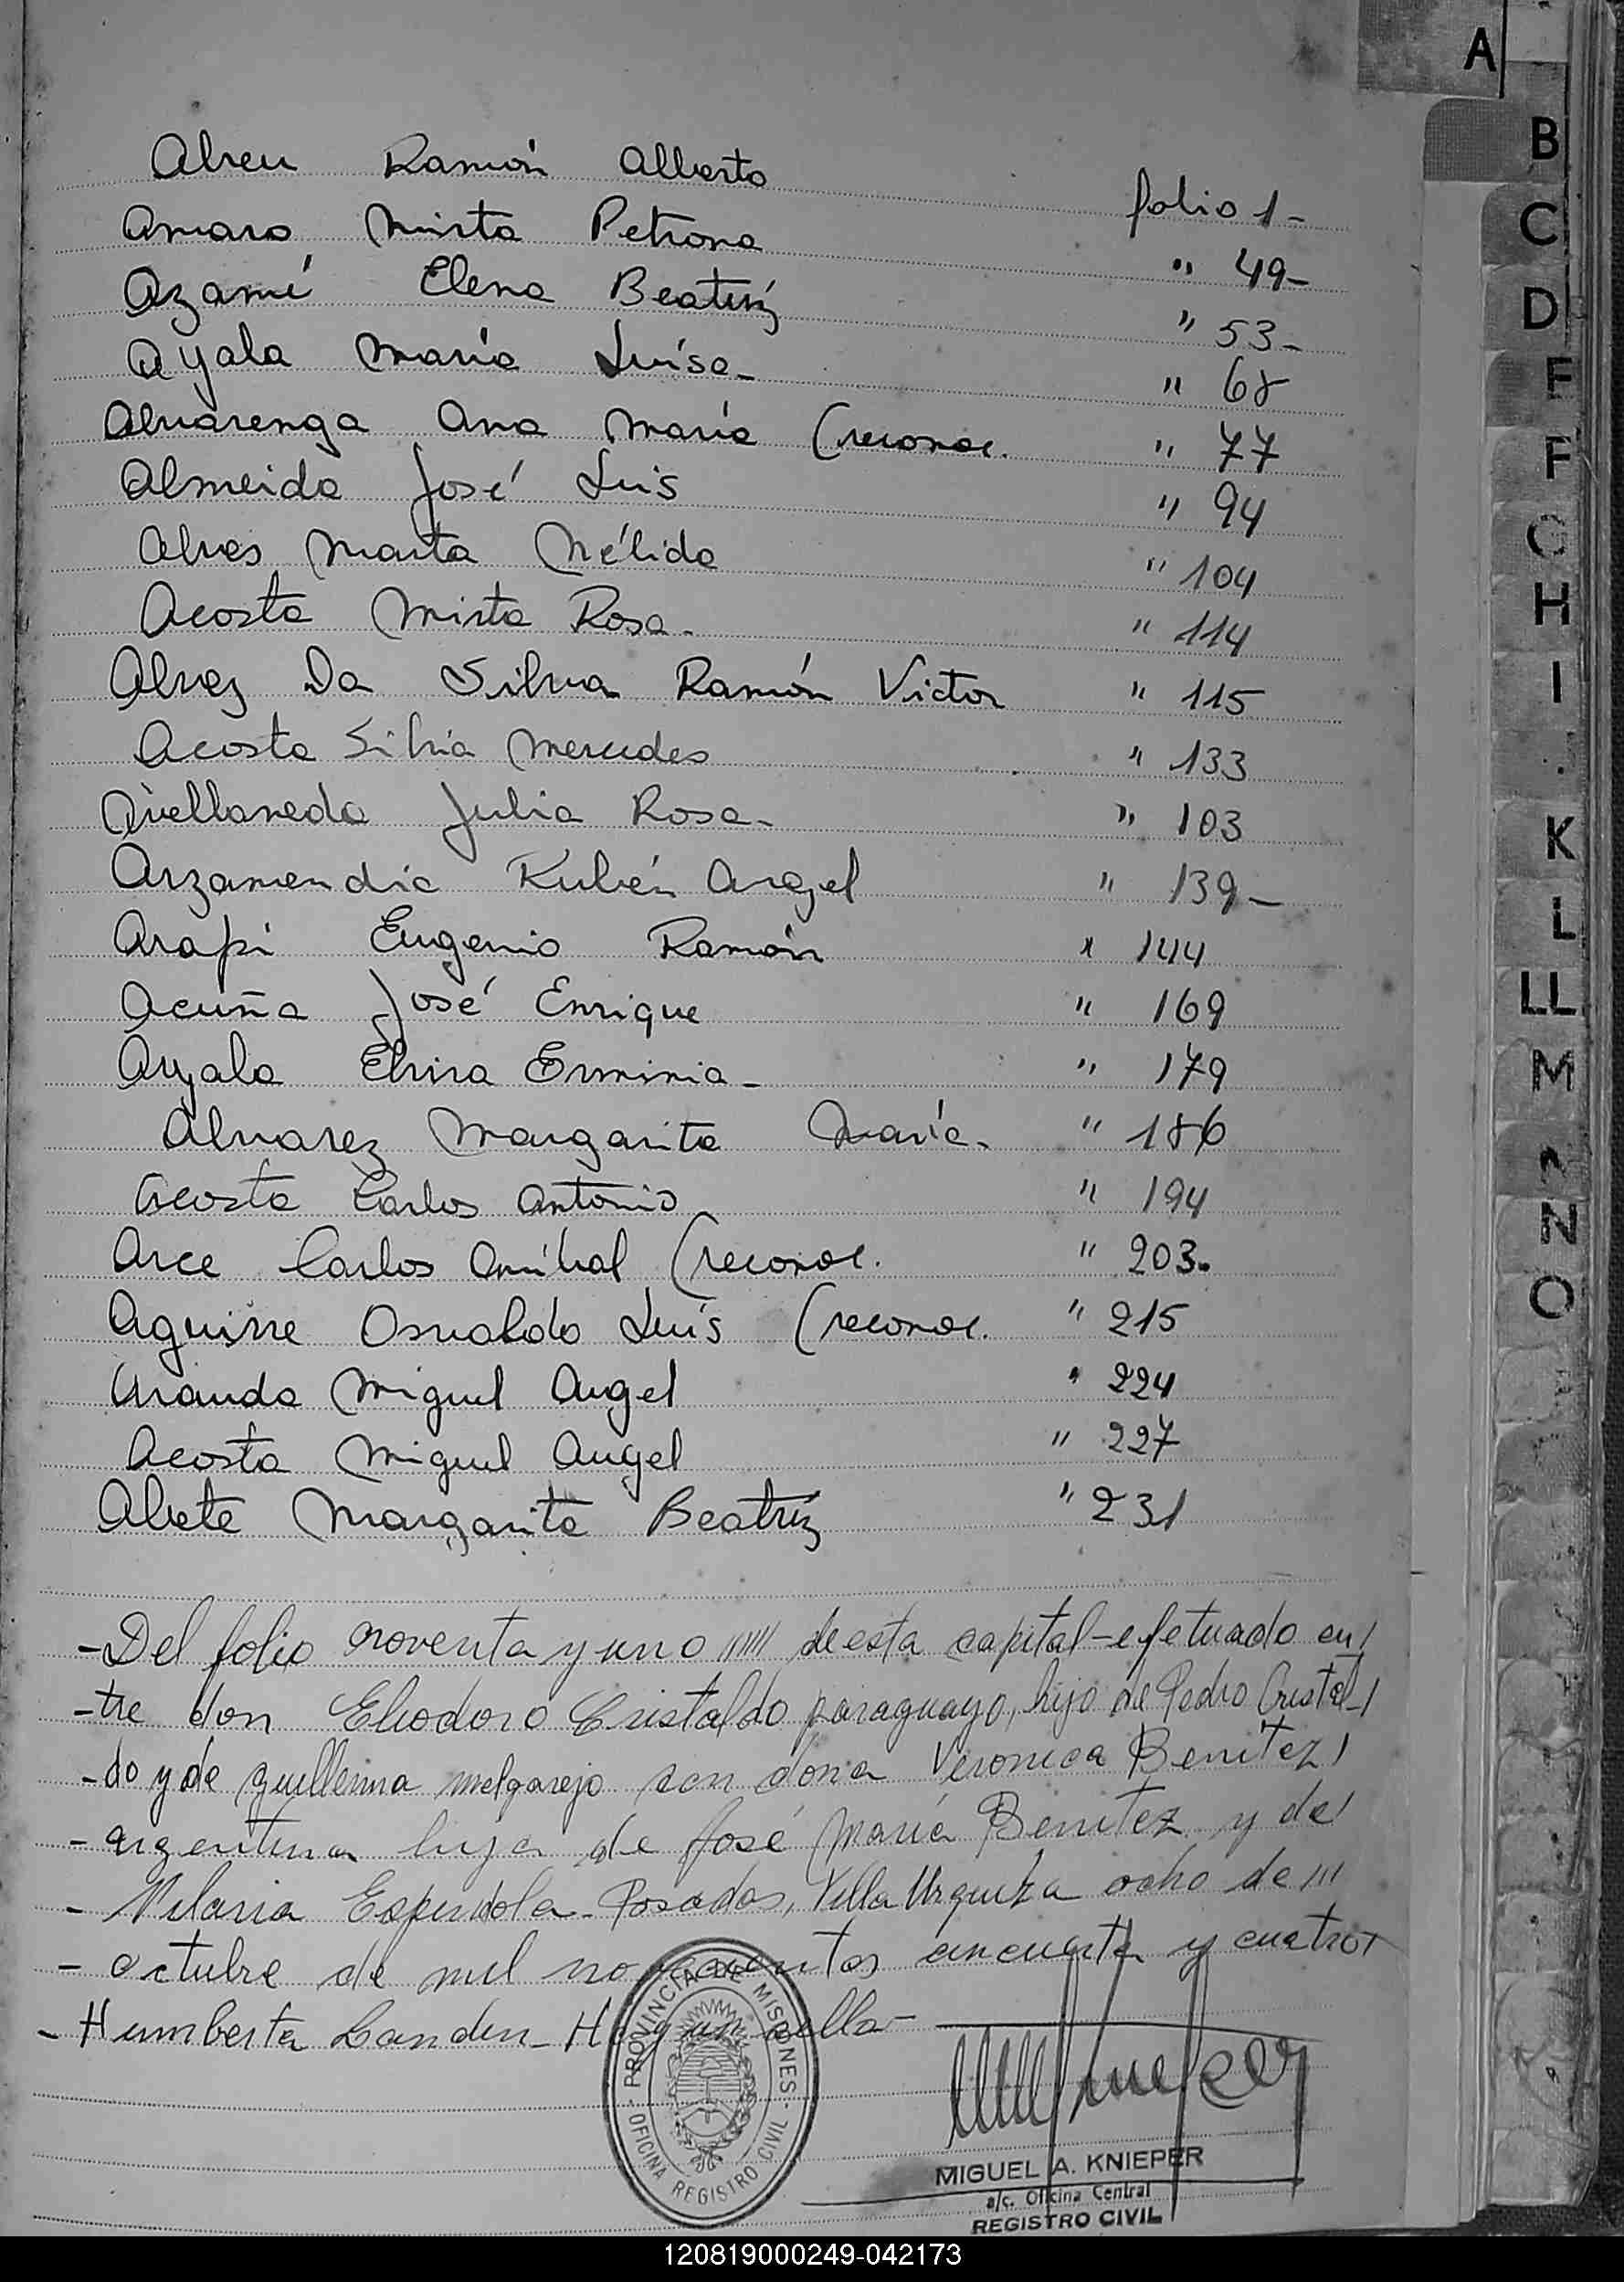 A
Abreu Ramón Alberto folio 1-
Amaro Mirta Petrona " 49-
Azamé Elena Beatríz " 53-
Ayala María Luisa- " 68
Alvarenga Ana María (reconoc. " 77
Almeida José Luis " 94
Alves Marta Nélida " 104
Acosta Mirta Rosa- " 114
Alvez Da Silva Ramón Victor " 115
Acosta Silvia Mercedes " 133
Avellaneda Julia Rosa- " 103
Arzamendia Rubén Angel " 139-
Arapi Eugenio Ramón " 144
Acuña José Enrique " 169
Ayala Elvira Erminia- " 179
Alvarez Margarita María- " 186
Acosta Carlos Antonio " 194
Arce Carlos Aníbal (reconoc. " 203-
Aguirre Osvaldo Luís (reconoc. " 215
Aranda Miguel Angel " 224
Acosta Miguel Angel " 227
Abete Margarita Beatríz " 231
-Del folio noventa y uno ///// de esta capital-efetuado en/
-tre don Eliodoro Cristaldo paraguayo, hijo de Pedro Cristal-/
-do y de guillerma melgarejo con dona Veronica Benitez/
-argentina hija de José María Benitez y de/
- Espindola- Posadas, Villa Urquiza ocho de ///
- octubre de mil novecientos cincuenta y cuatro
-Humberta
PROVINCIA DE MISIONES
OFICINA REGISTRO CIVIL
MIGUEL A. KNIEPER
a/c. Oficina Central
REGISTRO CIVIL
B
C
D
E
F
G
H
I
K
L
LL
M
N
O
120819000249-042173